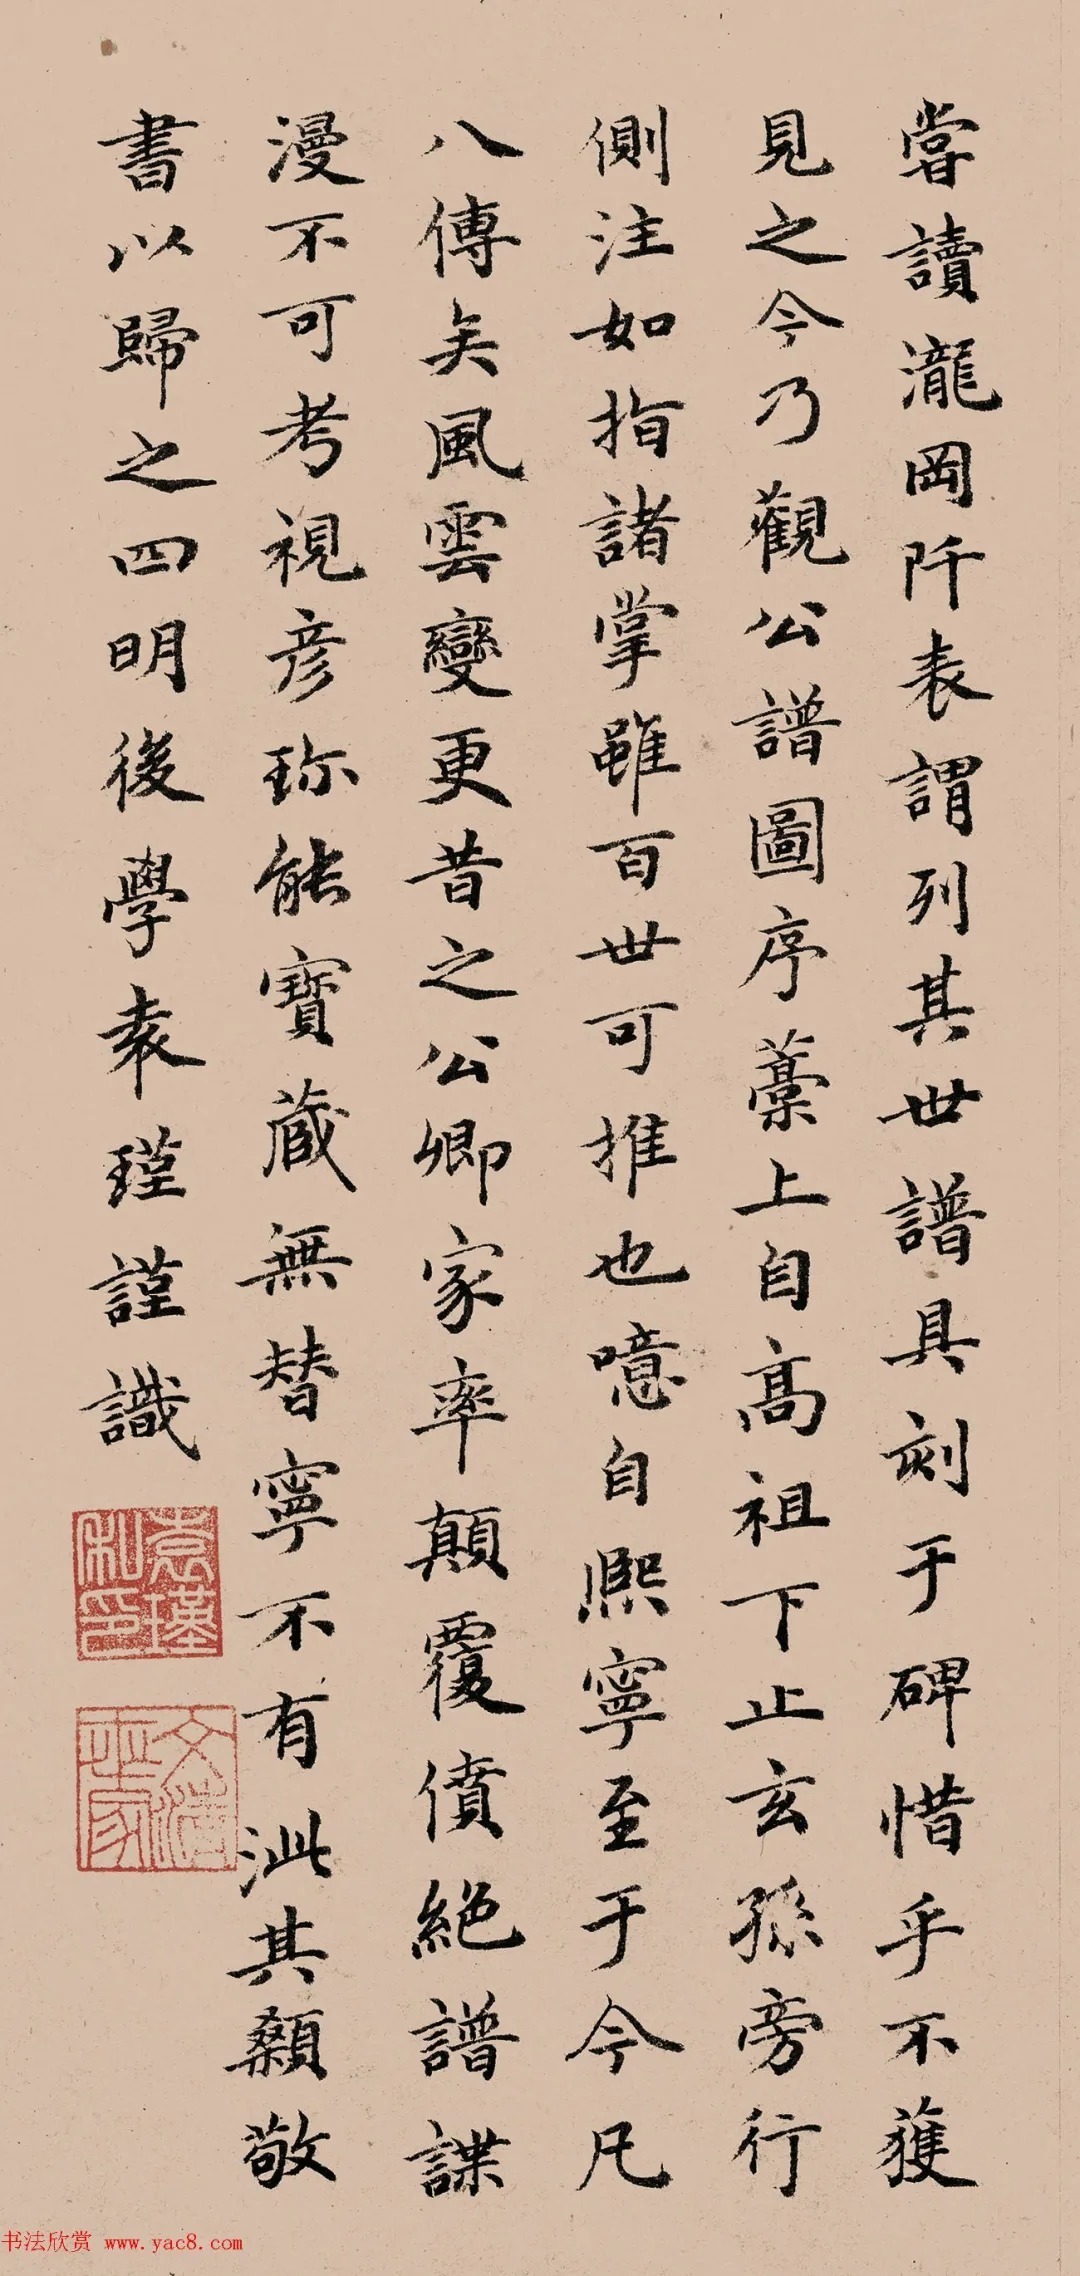 嘗讀瀧岡阡表謂列其世譜具刻于碑惜乎不獲
見之今乃觀公譜圖序藁上自高祖下止玄孫旁行
側注如指諸掌雖百世可推也噫自熙寧至于今凡
八傳矣風雲變更昔之公卿家率顛覆僨絕譜諜
漫不可考視彥珎能寶蔵無替寧不有泚其顙敬
書以歸之四明後學袁瑾謹識
袁瑾私印
书法欣赏 www.yac8.com